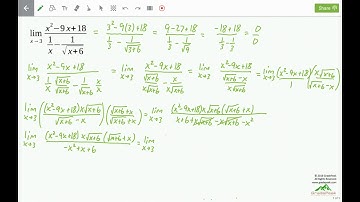 lim x→3 (x²-9x+18)/(1/x - 1/√(x+6)) = (3²-9(3)+18)/(1/3 - 1/√(3+6)) = (9-27+18)/(1/3 - 1/√9) = (-18+18)/(1/3 - 1/3) = 0/0
lim x→3 (x²-9x+18)/(√(x+6)/√(x+6) · 1/x - 1/√(x+6) · x/x) = lim x→3 (x²-9x+18)/(√(x+6)/(x√(x+6)) - x/(x√(x+6))) = lim x→3 (x²-9x+18)/((√(x+6)-x)/(x√(x+6))) = lim x→3 (x²-9x+18)/1 (x√(x+6)/(√(x+6)-x))
lim x→3 ((x²-9x+18)x√(x+6)/(√(x+6)-x)) ((√(x+6)+x)/(√(x+6)+x)) = lim x→3 (x²-9x+18)x√(x+6)(√(x+6)+x)/(x+6+x√(x+6)-x√(x+6)-x²)
lim x→3 (x²-9x+18)x√(x+6)(√(x+6)+x)/(-x²+x+6) = lim x→3